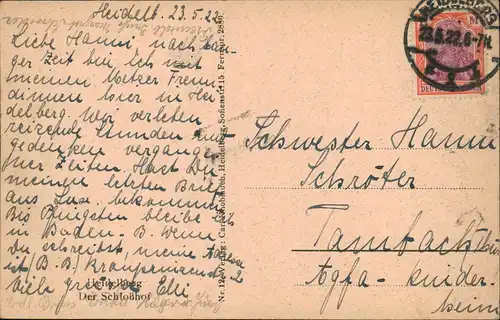 Heidelb. 23.5.22
Liebe Hanni, nach lan-
ger Zeit bin ich mit
meinen Metzer Freun
dinnen hier in Hei
delberg. Wir verleben
reizende Stunden u.
gedenken vergange-
ner Zeiten. Hast Du
meinen letzten Brief
aus Lux. bekommen?
Bis Pfingsten bleibe ich
in Baden-B. Wenn
Du schreibst, meine Adresse
ist (B.B.) 2
Viele Grüße Elli
Heidelberg
Der Schloßhof
Nr. 12 Verlag: Heidelberg, Sofienstr. 15. Fernspr. 2880
HEIDELBERG
23.5.22.6-7N
Schwester Hanni
Schröter
Tambach
Agfa-Kinder-
heim